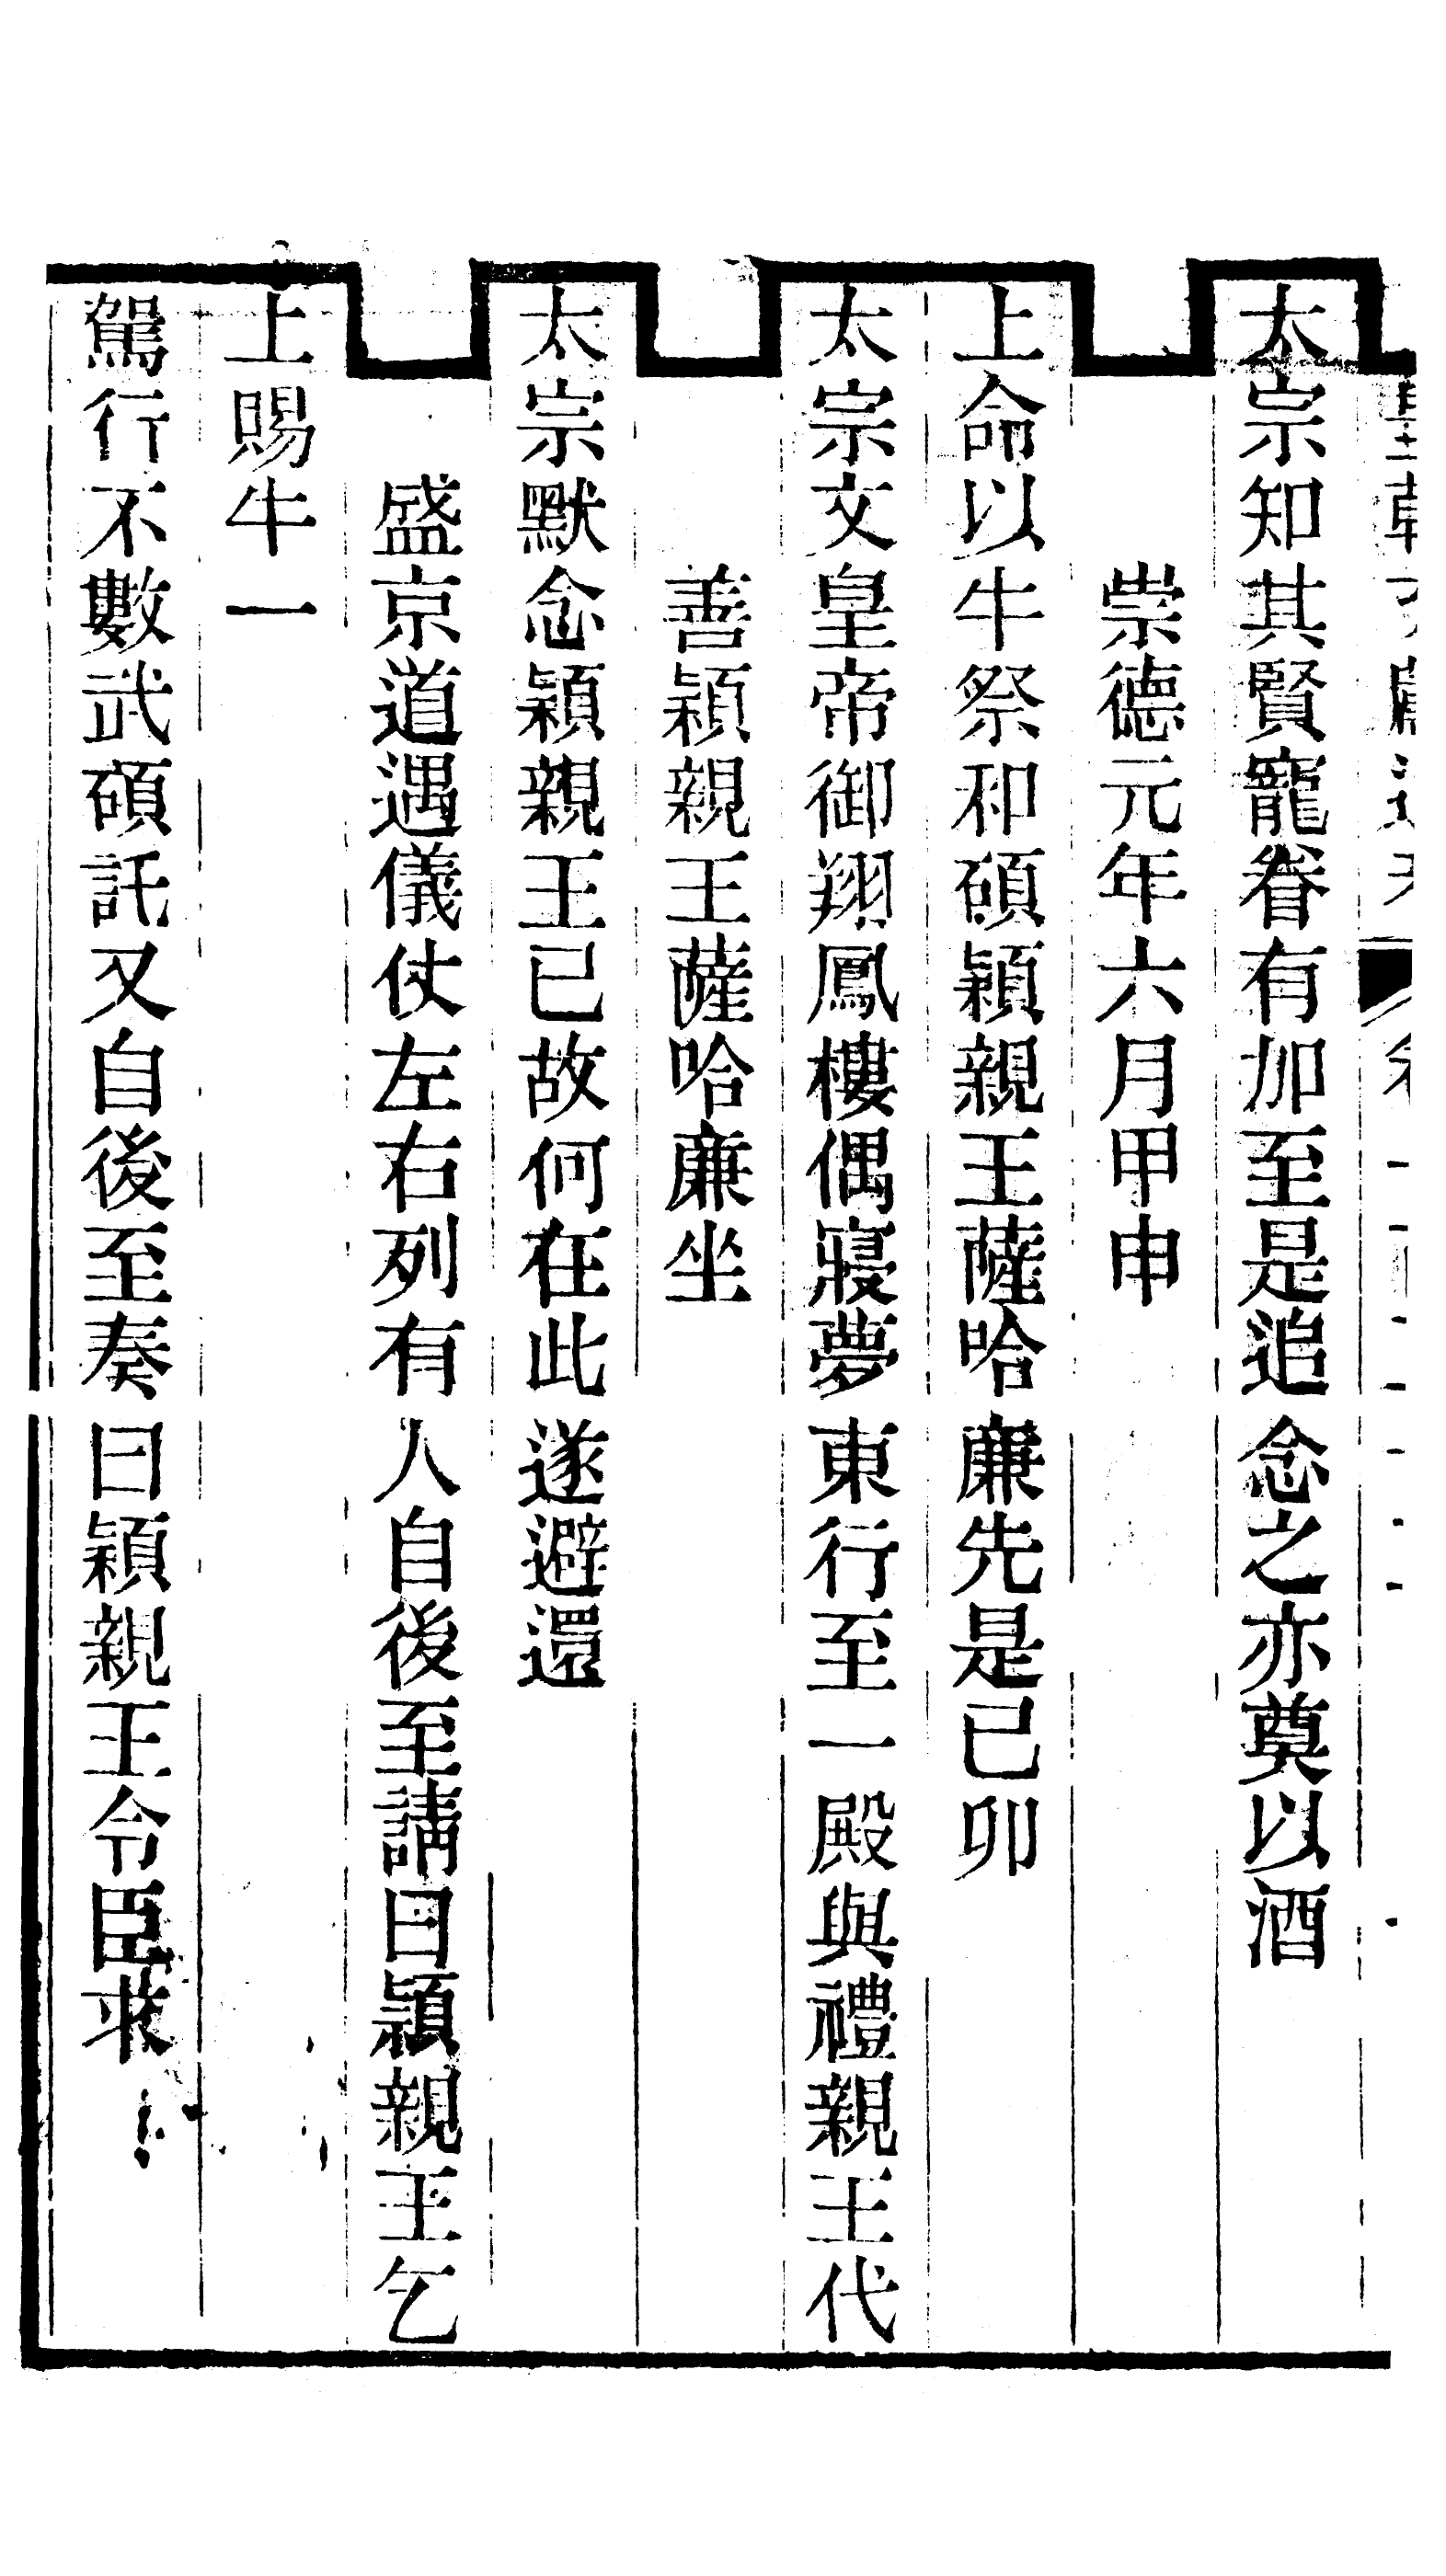 太宗知其賢寵眷有加至是追念之亦奠以酒
崇德元年六月甲申
上命以牛祭和碩穎親王薩哈廉先是已卯
太宗文皇帝御翔鳳樓偶寢夢東行至一殿與禮親王代
善穎親王薩哈廉坐
太宗默念穎親王已故何在此遂避還
盛京道遇儀仗左右列有人自後至請曰穎親王乞
上賜牛一
駕行不數武碩託又自後至奏曰穎親王令臣求